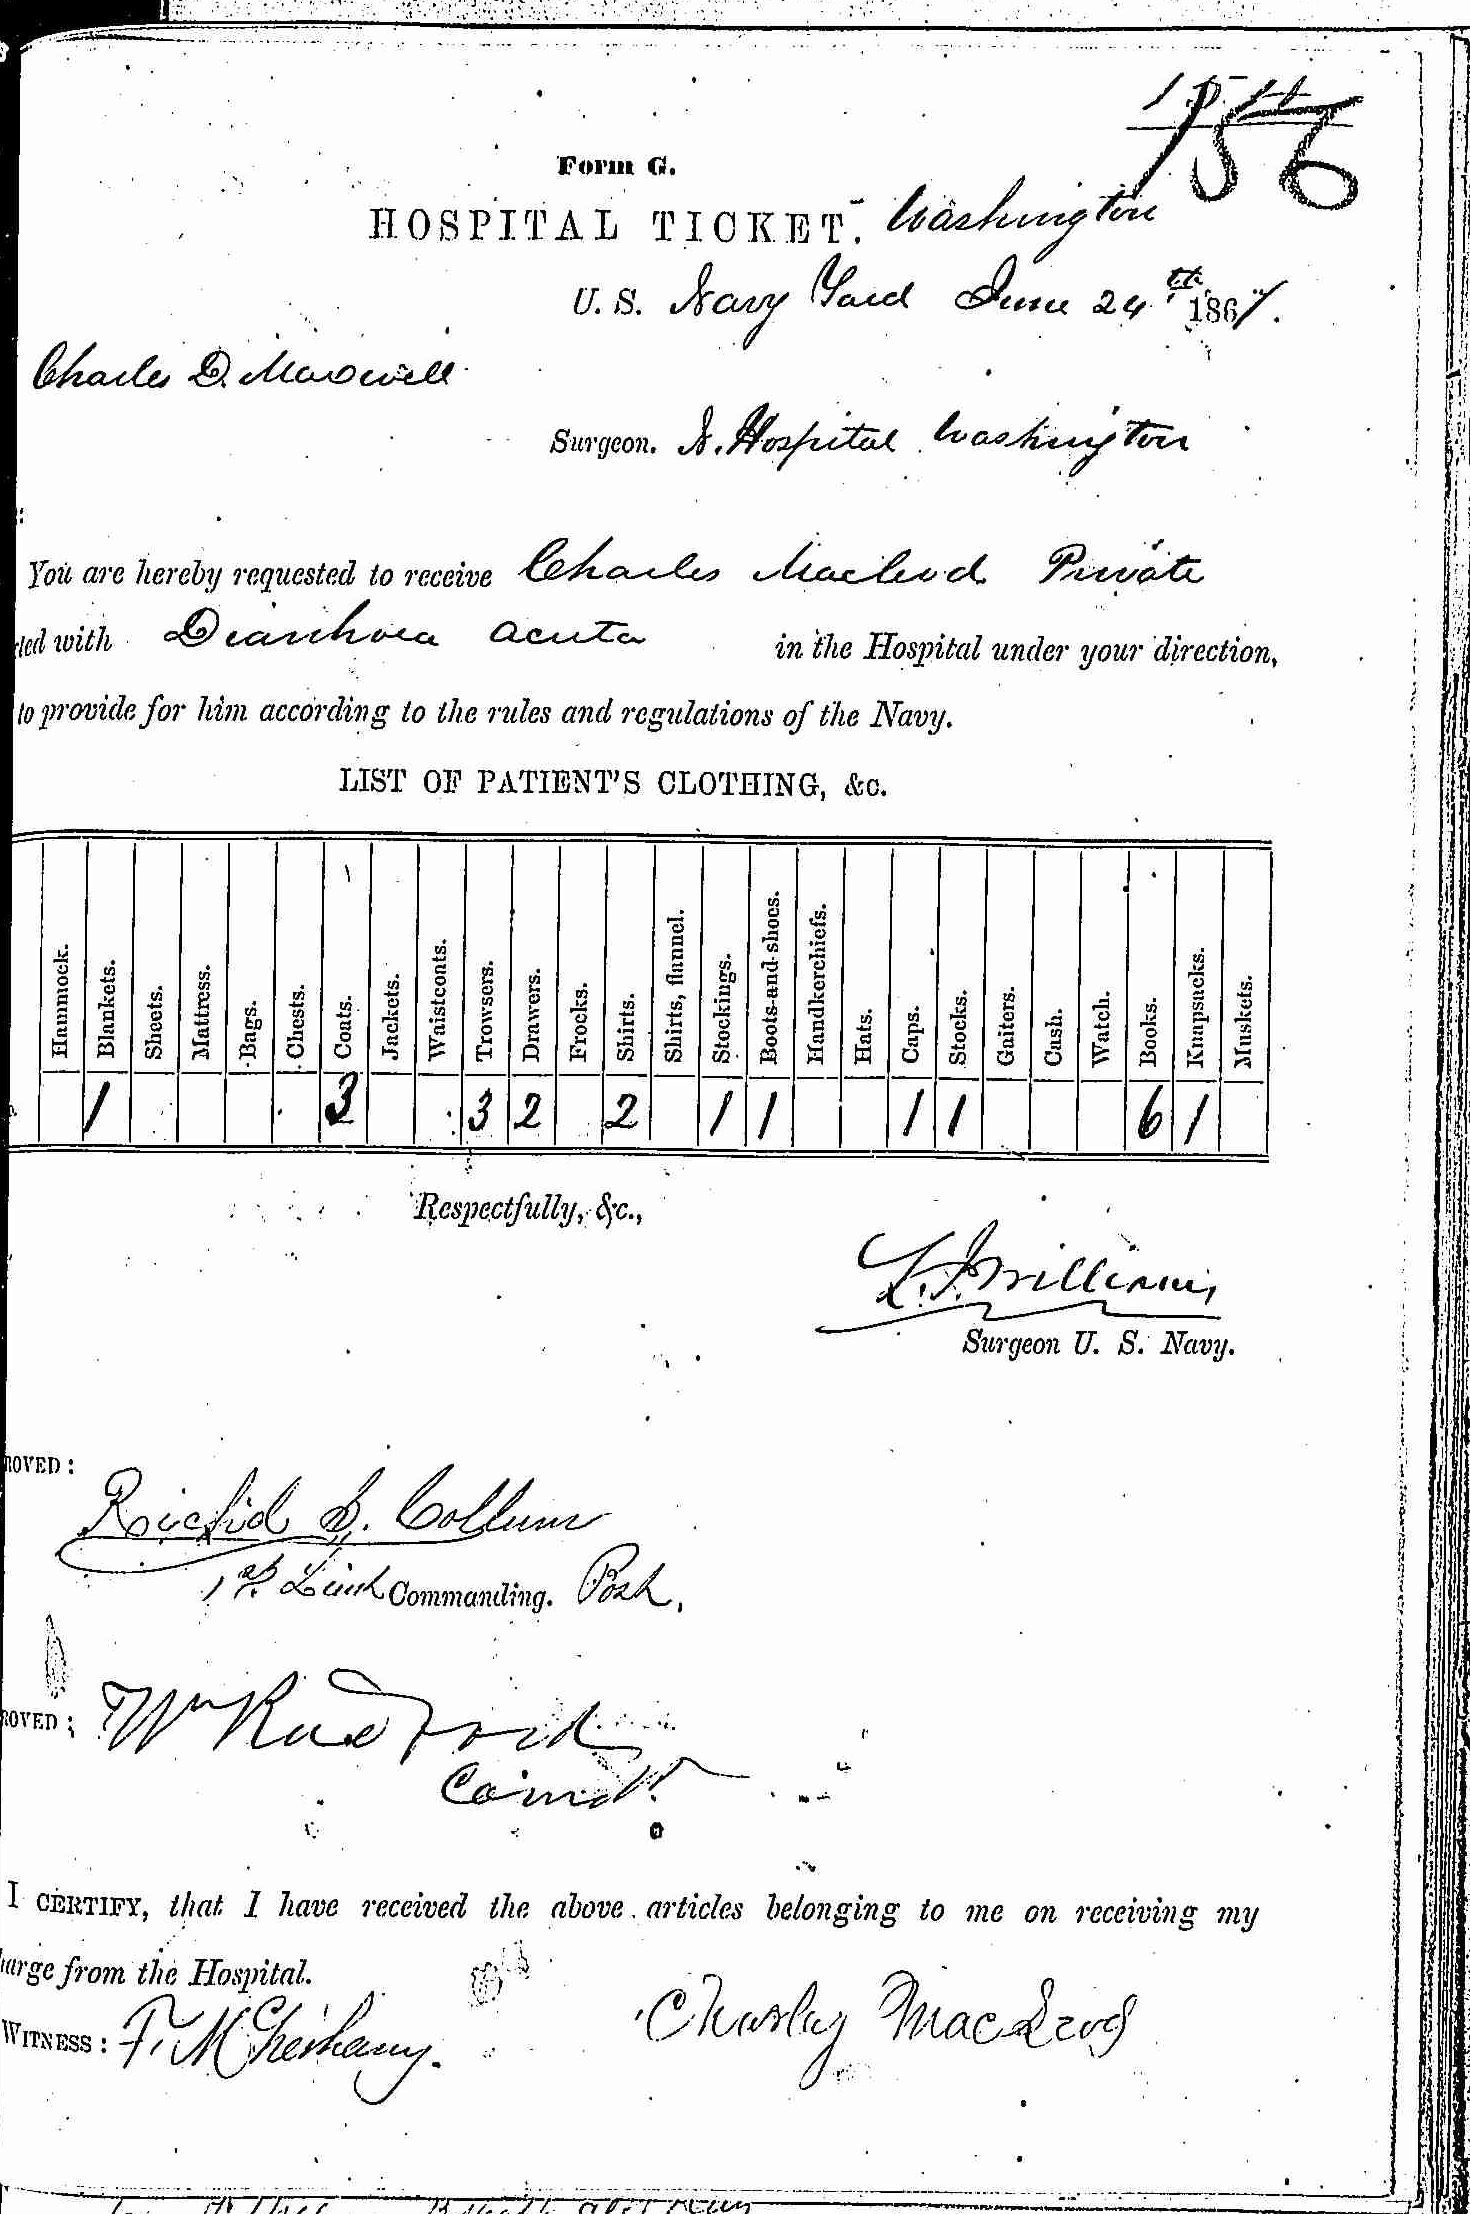 156
Form G.
HOSPITAL TICKET. Washington
U. S. Navy Yard June 24th 1867.
Charles D. Maxwell
Surgeon. N. Hospital Washington
You are hereby requested to receive Charles Macleod Private
ted with Diarrhoea acuta in the Hospital under your direction,
to provide for him according to the rules and regulations of the Navy.
LIST OF PATIENT'S CLOTHING, &c.
Hammock. Blankets. Sheets. Mattress. Bags. Chests. Coats. Jackets. Waistcoats. Trowsers. Drawers. Frocks. Shirts. Shirts, flannel. Stockings. Boots and shoes. Handkerchiefs. Hats. Caps. Stocks. Gaiters. Cash. Watch. Books. Knapsacks. Muskets.
1 3 3 2 2 1 1 1 1 6 1
Respectfully, &c.,
Williams
Surgeon U. S. Navy.
ROVED:
Richd S. Collum
1st Lieut Commanding. Post.
ROVED: Wm Radford
Comdt.
I CERTIFY, that I have received the above articles belonging to me on receiving my
harge from the Hospital.
WITNESS: F.
Charley MacLeod